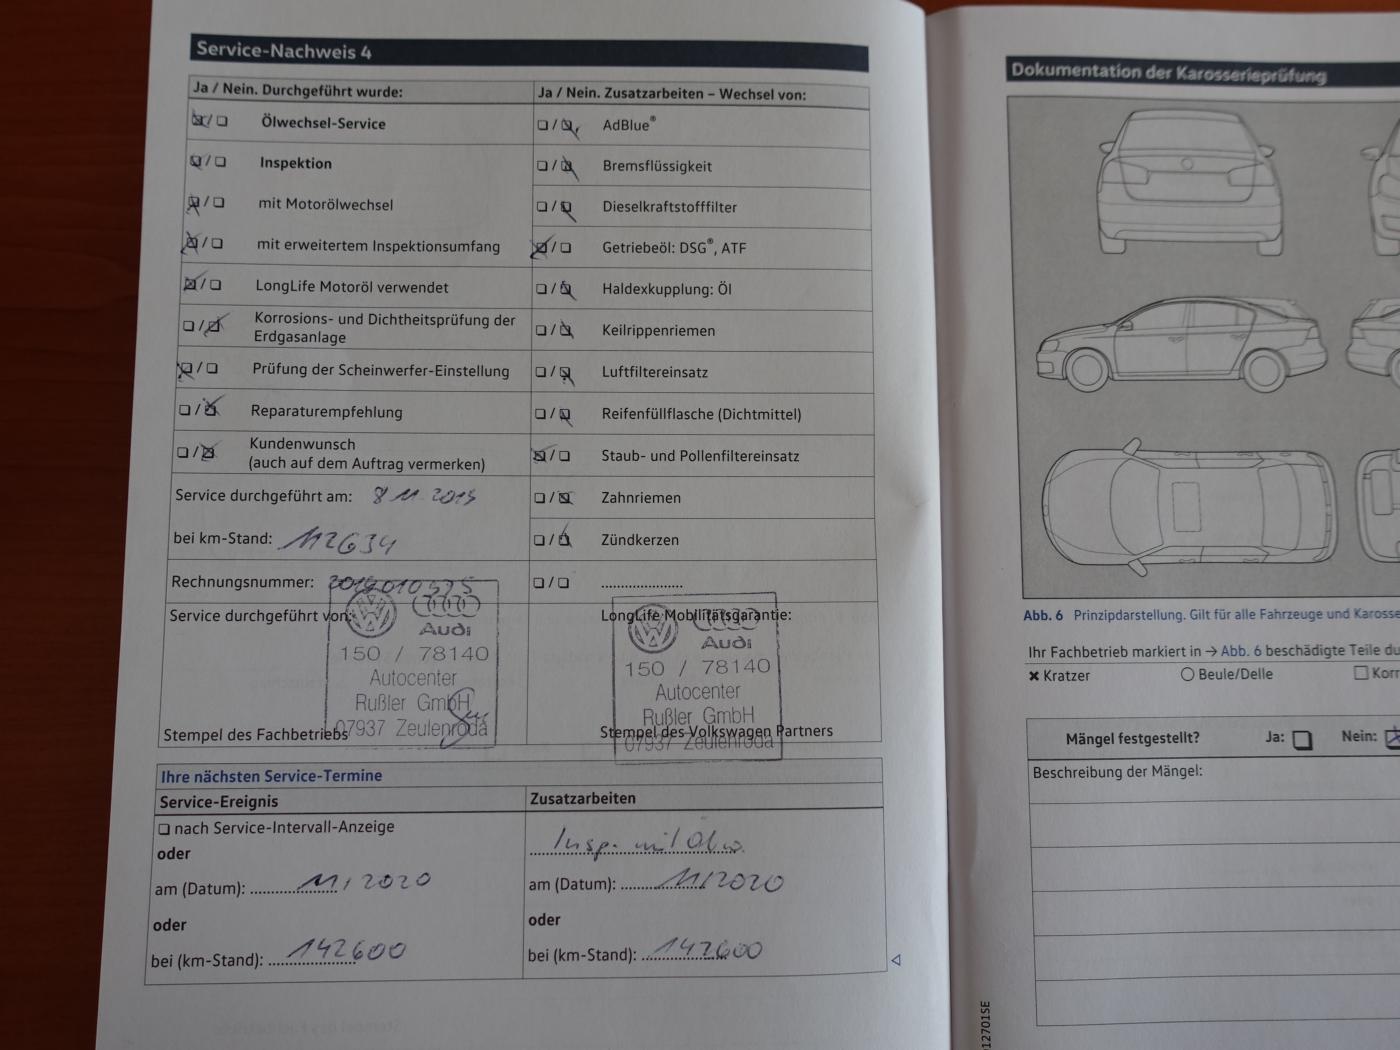 Service-Nachweis 4
Ja / Nein. Durchgeführt wurde:
Ölwechsel-Service
Inspektion
mit Motorölwechsel
mit erweitertem Inspektionsumfang
LongLife Motoröl verwendet
Korrosions- und Dichtheitsprüfung der
Erdgasanlage
Prüfung der Scheinwerfer-Einstellung
Reparaturempfehlung
Kundenwunsch
(auch auf dem Auftrag vermerken)
Service durchgeführt am: 8 11 2019
bei km-Stand: 112634
Rechnungsnummer:
Service durchgeführt von:
Audi
150 / 78140
Autocenter
Rußler GmbH
07937 Zeulenroda
Stempel des Fachbetriebs
Ja / Nein. Zusatzarbeiten – Wechsel von:
AdBlue®
Bremsflüssigkeit
Dieselkraftstofffilter
Getriebeöl: DSG®, ATF
Haldexkupplung: Öl
Keilrippenriemen
Luftfiltereinsatz
Reifenfüllflasche (Dichtmittel)
Staub- und Pollenfiltereinsatz
Zahnriemen
Zündkerzen
LongLife Mobilitätsgarantie:
Audi
150 / 78140
Autocenter
Rußler GmbH
07937 Zeulenroda
Stempel des Volkswagen Partners
Ihre nächsten Service-Termine
Service-Ereignis
nach Service-Intervall-Anzeige
oder
am (Datum): 11/2020
oder
bei (km-Stand): 142600
Zusatzarbeiten
Insp. mit Ölw.
am (Datum): 11/2020
oder
bei (km-Stand): 142600
Dokumentation der Karosserieprüfung
Abb. 6 Prinzipdarstellung. Gilt für alle Fahrzeuge und Karosse
Ihr Fachbetrieb markiert in → Abb. 6 beschädigte Teile du
Kratzer
Beule/Delle
Korr
Mängel festgestellt? Ja: Nein:
Beschreibung der Mängel:
012701SE